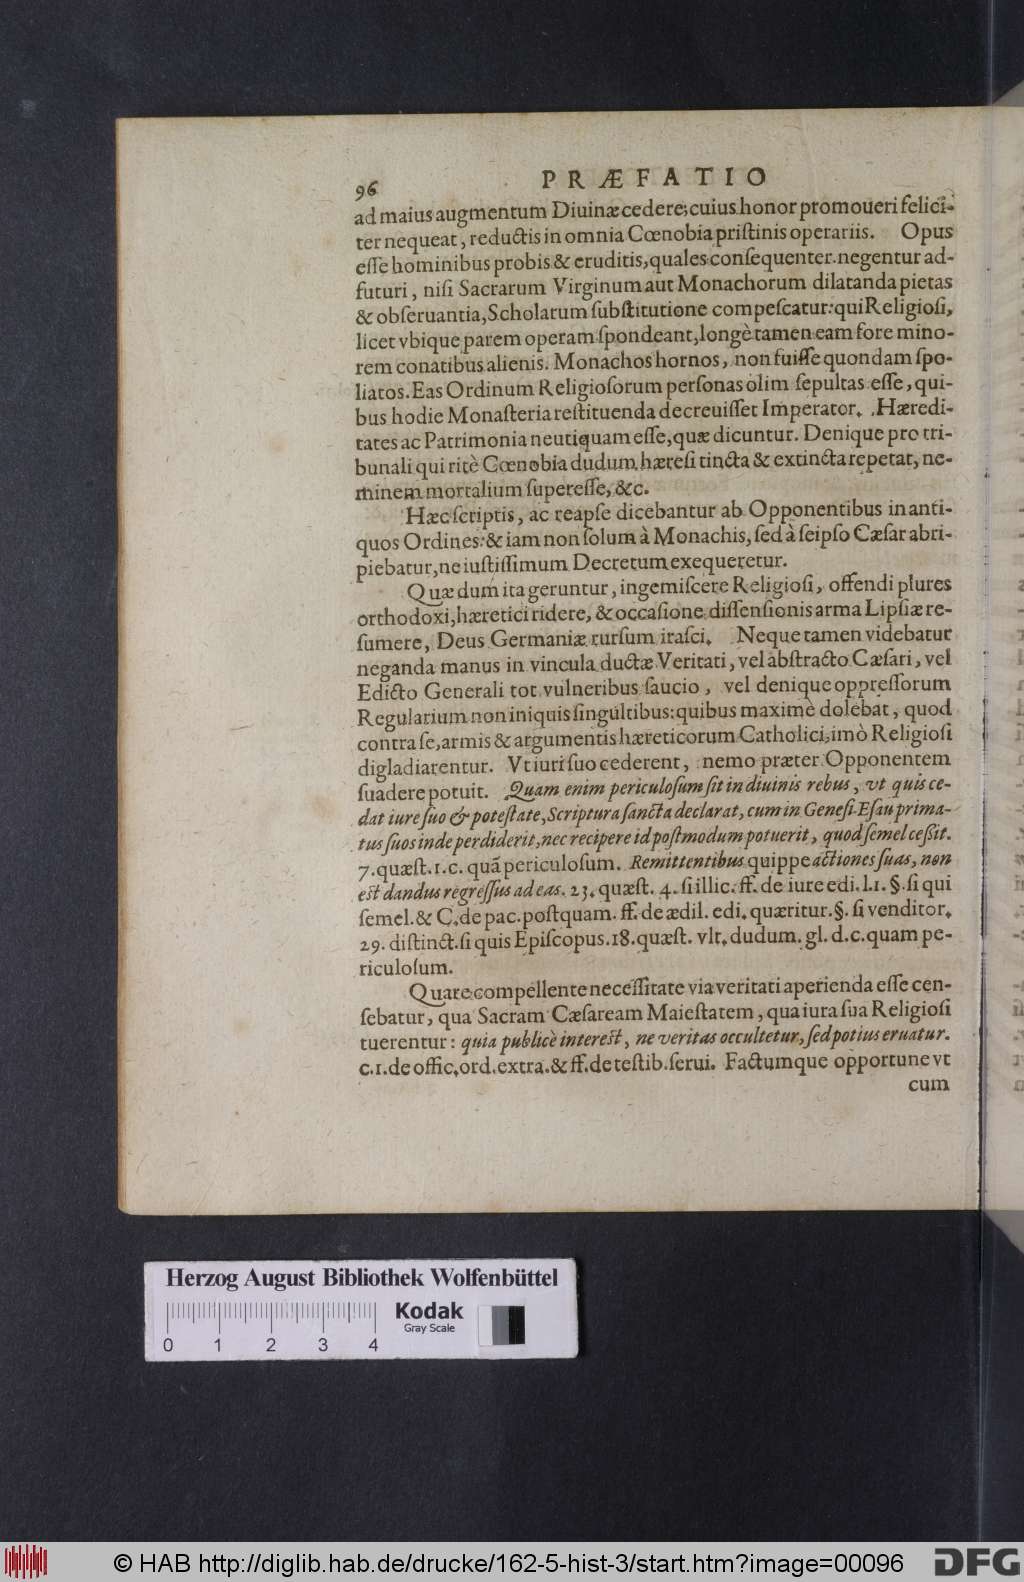 96 PRÆFATIO
ad maius augmentum Diuinæ cedere; cuius honor promoueri felici-
ter nequeat, reductis in omnia Cœnobia pristinis operariis. Opus
esse hominibus probis & eruditis, quales consequenter negentur ad-
futuri, nisi Sacrarum Virginum aut Monachorum dilatanda pietas
& obseruantia, Scholarum substitutione compescatur: qui Religiosi,
licet vbique parem operam spondeant, longè tamen eam fore mino-
rem conatibus alienis. Monachos hornos, non fuisse quondam spo-
liatos. Eas Ordinum Religiosorum personas olim sepultas esse, qui-
bus hodie Monasteria restituenda decreuisset Imperator. Hæredi-
tates ac Patrimonia neutiquam esse, quæ dicuntur. Denique pro tri-
bunali qui ritè Cœnobia dudum hæresi tincta & extincta repetat, ne-
minem mortalium superesse, &c.
Hæc scriptis, ac reapse dicebantur ab Opponentibus in anti-
quos Ordines: & iam non solum à Monachis, sed à seipso Cæsar abri-
piebatur, ne iustissimum Decretum exequeretur.
Quæ dum ita geruntur, ingemiscere Religiosi, offendi plures
orthodoxi, hæretici ridere, & occasione dissensionis arma Lipsiæ re-
sumere, Deus Germaniæ rursum irasci. Neque tamen videbatur
neganda manus in vincula ductæ Veritati, vel abstracto Cæsari, vel
Edicto Generali tot vulneribus saucio, vel denique oppressorum
Regularium non iniquis singultibus: quibus maximè dolebat, quod
contra se, armis & argumentis hæreticorum Catholici, imò Religiosi
digladiarentur. Vt iuri suo cederent, nemo præter Opponentem
suadere potuit. Quam enim periculosum sit in diuinis rebus, vt quis ce-
dat iure suo & potestate, Scriptura sancta declarat, cum in Genesi Esau prima-
tus suos inde perdiderit, nec recipere id postmodum potuerit, quod semel cessit.
7. quæst. 1. c. quã periculosum. Remittentibus quippe actiones suas, non
est dandus regressus ad eas. 23. quæst. 4. si illic. ff. de iure edi. l. 1. §. si qui
semel. & C. de pac. postquam. ff. de ædil. edi. quæritur. §. si venditor.
29. distinct. si quis Episcopus. 18. quæst. vlt. dudum. gl. d. c. quam pe-
riculosum.
Quare compellente necessitate via veritati aperienda esse cen-
sebatur, qua Sacram Cæsaream Maiestatem, qua iura sua Religiosi
tuerentur: quia publicè interest, ne veritas occultetur, sed potius eruatur.
c. 1. de offic. ord. extra. & ff. de testib. serui. Factumque opportune vt
cum
Herzog August Bibliothek Wolfenbüttel
Kodak
Gray Scale
0 1 2 3 4
© HAB http://diglib.hab.de/drucke/162-5-hist-3/start.htm?image=00096
DFG